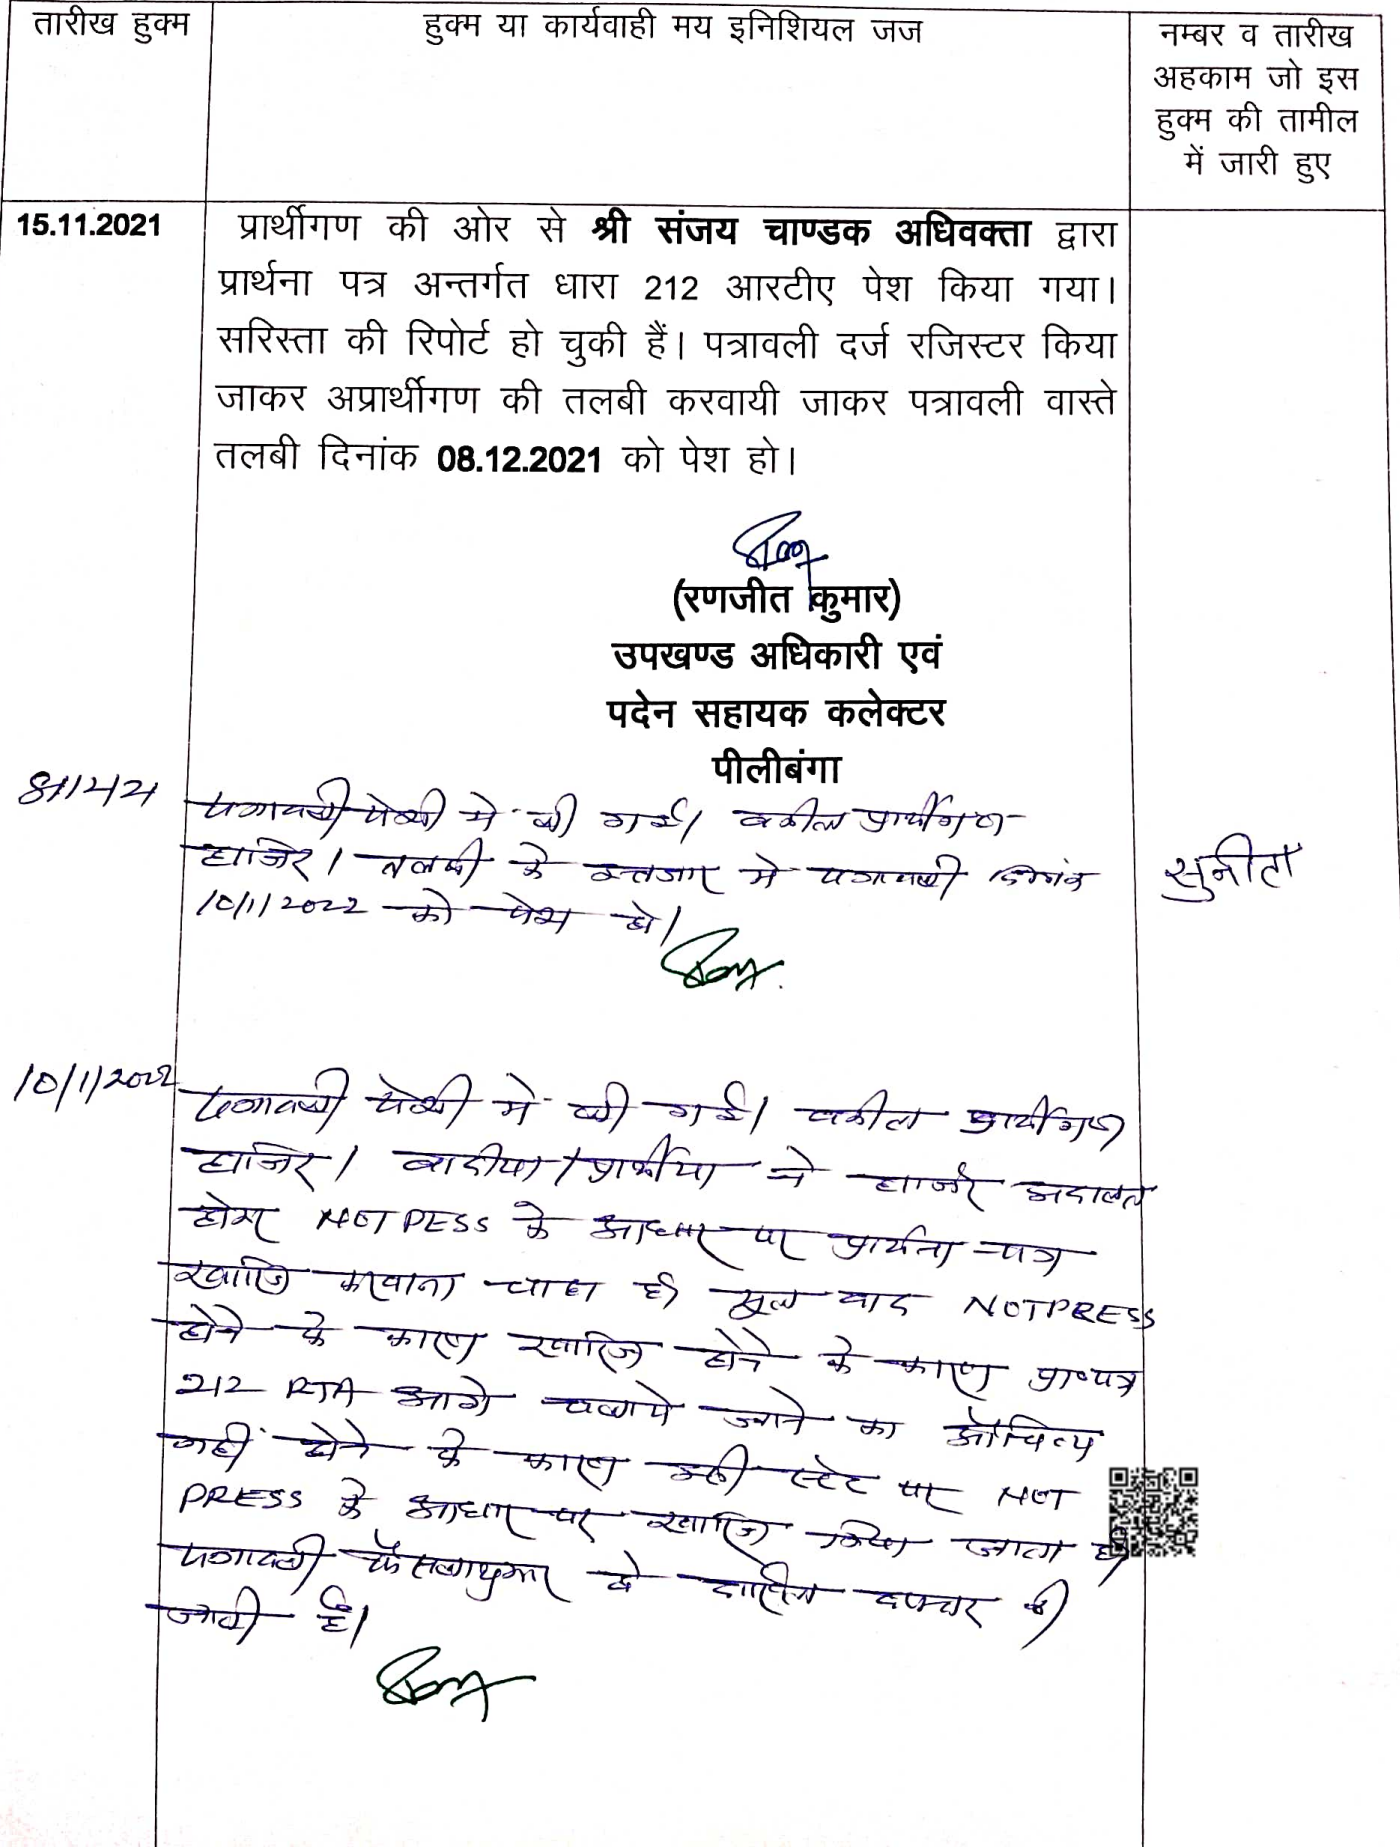 तारीख हुक्म
हुक्म या कार्यवाही मय इनिशियल जज
नम्बर व तारीख
अहकाम जो इस
हुक्म की तामील
में जारी हुए
15.11.2021
प्रार्थीगण की ओर से श्री संजय चाण्डक अधिवक्ता द्वारा
प्रार्थना पत्र अन्तर्गत धारा 212 आरटीए पेश किया गया।
सरिस्ता की रिपोर्ट हो चुकी हैं। पत्रावली दर्ज रजिस्टर किया
जाकर अप्रार्थीगण की तलबी करवायी जाकर पत्रावली वास्ते
तलबी दिनांक 08.12.2021 को पेश हो।
(रणजीत कुमार)
उपखण्ड अधिकारी एवं
पदेन सहायक कलेक्टर
पीलीबंगा
8/12/21
पत्रावली पेशी में ली गई। वकील प्रार्थीगण
हाजिर। तलबी के इन्तजार में पत्रावली दिनांक
10/1/2022 को पेश हो।
सुनीता
10/1/2022
पत्रावली पेशी में ली गई। वकील प्रार्थीगण
हाजिर। वादीया/प्रार्थीया ने हाजिर अदालत
होकर NOT PESS के आधार पर प्रार्थना-पत्र
खारिज करवाना चाहा है। मूल वाद NOTPRESS
होने के कारण खारिज होने के कारण प्रा०पत्र
212 RTA आगे चलाये जाने का औचित्य
नहीं होने के कारण इसी स्टेट पर NOT
PRESS के आधार पर खारिज किया जाता है।
पत्रावली फैसलाशुमार हो दाखिल दफ्तर की
जाती है।